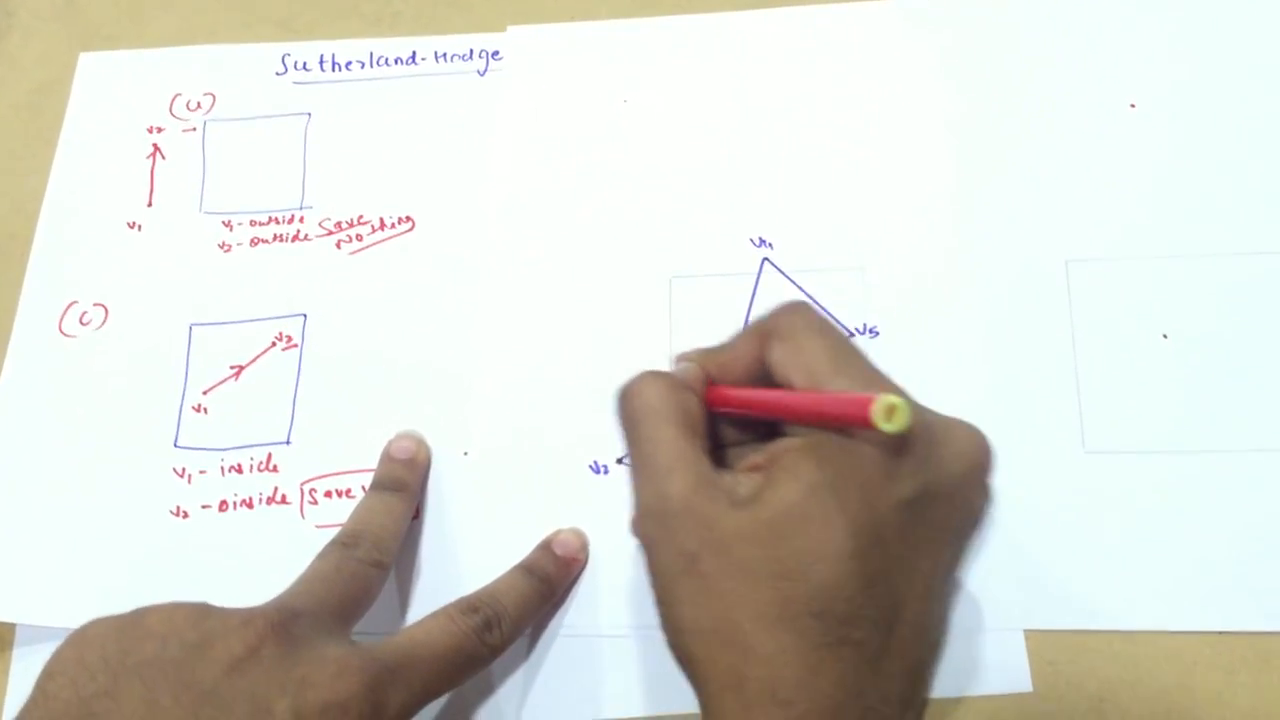 Sutherland-Hodge
(a)
v2
v1
v1 - outside
v2 - outside Save Nothing
(c)
v2
v1
v1 - inside
v2 - inside Save
v1
v5
v2